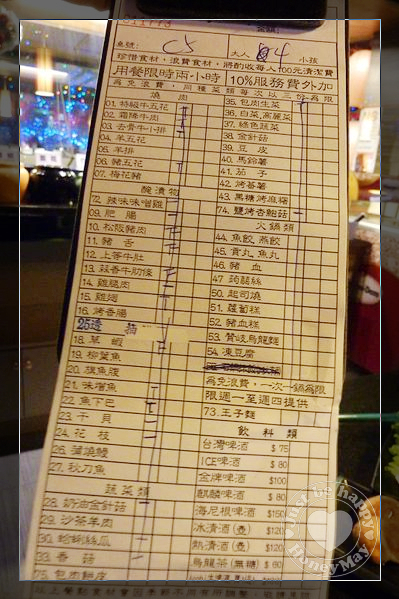 桌號: C5 大人 4 小孩
珍惜食材,浪費食材,將酌收每人100元清潔費
用餐限時兩小時 10%服務費外加
為免浪費,同種菜類每次以三份為限
燒肉
01. 特級牛五花
02. 霜降牛肉
03. 去骨牛小排
04. 羊五花
05. 羊排
06. 豬五花
07. 梅花豬
醃漬物
72. 辣味味噌雞
09. 肥腸
10. 松阪豬肉
11. 豬舌
12. 上等牛肚
13. 蒜香牛肋條
14. 雞腿肉
15. 雞翅
16. 烤香腸
18. 草蝦
19. 柳葉魚
20. 旗魚腹
21. 味噌魚
22. 魚下巴
23. 干貝
24. 花枝
26. 蒲燒鰻
27. 秋刀魚
蔬菜類
28. 奶油金針菇
29. 沙茶羊肉
30. 蛤蜊絲瓜
33. 香菇
75. 包肉餅皮
35. 包肉生菜
36. 白菜,高麗菜
37. 綠色蔬菜
38. 金針菇
39. 豆皮
40. 馬鈴薯
41. 茄子
42. 烤蕃薯
43. 黑糖烤麻糬
74. 鹽烤杏鮑菇
火鍋類
44. 魚餃,燕餃
45. 貢丸,魚丸
46. 豬血
47. 蒟蒻絲
50. 起司燒
51. 蘿蔔糕
52. 豬血糕
53. 讚岐烏龍麵
54. 凍豆腐
為免浪費,一次一鍋為限
限週一至週四提供
73. 王子麵
飲料類
台灣啤酒 $ 75
ICE啤酒 $ 80
金牌啤酒 $100
麒麟啤酒 $ 80
海尼根啤酒 $150
冰清酒(壺) $120
熱清酒(壺) $120
烏龍茶(無糖) $ 60
just be happy
HoneyMay